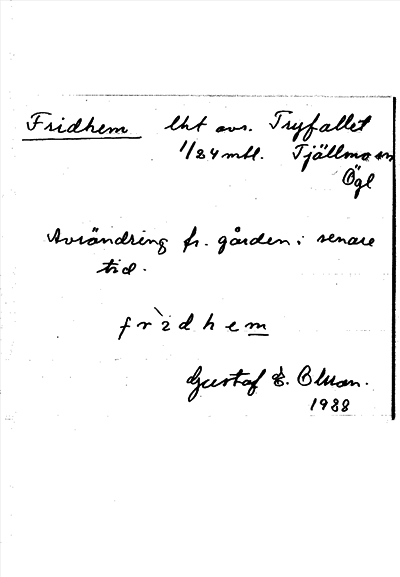 Fridhem lht avs. Tryfallet
1/24 mtl. Tjällmo sn
Ögl
Avsöndring fr. gården i senare
tid.
fr̀idhem
Gustaf E.
1988